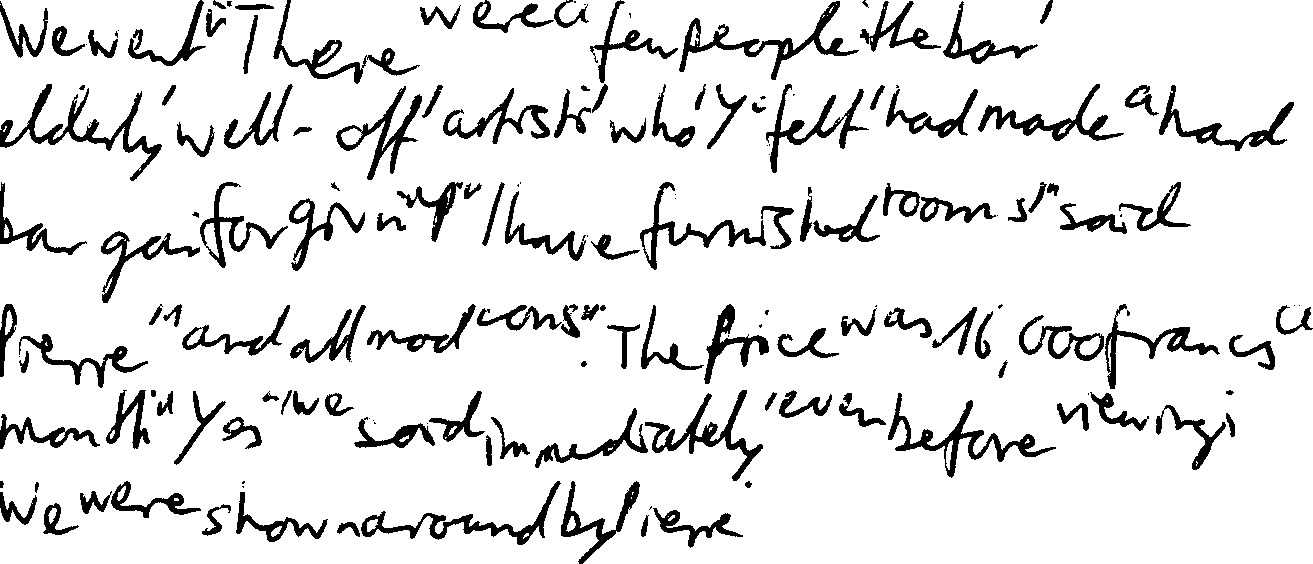 We went in. There were a few people in the bar,
elderly, well-off artists, who, you felt, had made a hard
bargain for giving up. "I have furnished rooms," said
Pierre, "and all mod cons". The price was 16,000 francs a
month. "Yes", we said immediately, even before viewing it.
We were shown around by Pierre